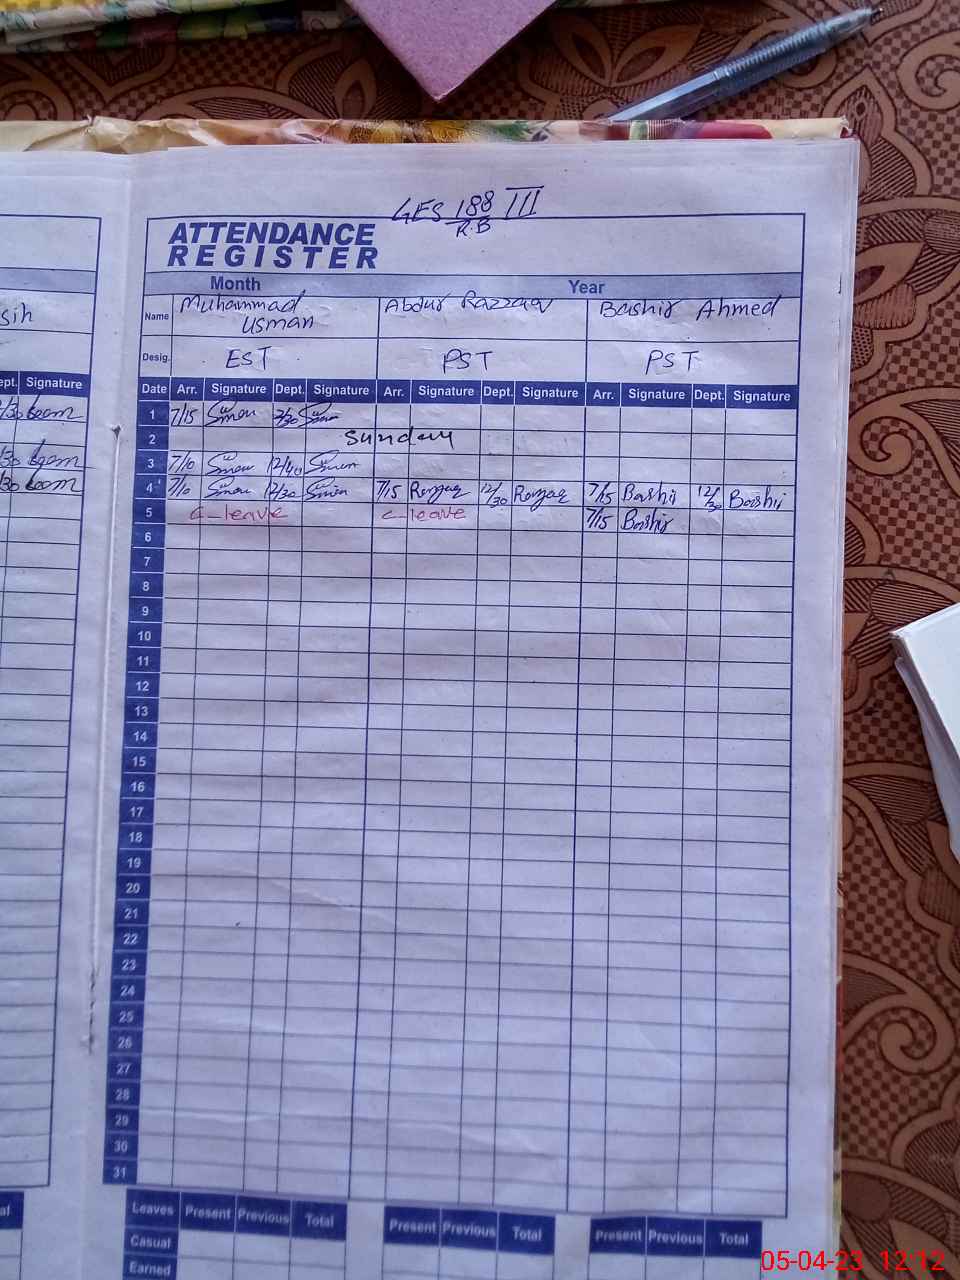 GES 188 III
R.B
ATTENDANCE
REGISTER
Month Year
Name Muhammad Usman Abdur Razzaq Bashir Ahmed
Desig. EST PST PST
Date Arr. Signature Dept. Signature Arr. Signature Dept. Signature Arr. Signature Dept. Signature
1 7/15
2 Sunday
3 7/10 12/40
4 7/10 12/30 7/15 Razzaq 12/30 Razzaq 7/15 Bashir 12/30 Bashir
5 C-leave C-leave 7/15 Bashir
6
7
8
9
10
11
12
13
14
15
16
17
18
19
20
21
22
23
24
25
26
27
28
29
30
31
Leaves Present Previous Total Present Previous Total Present Previous Total
Casual
Earned
sih
ept. Signature
al
05-04-23 12:12